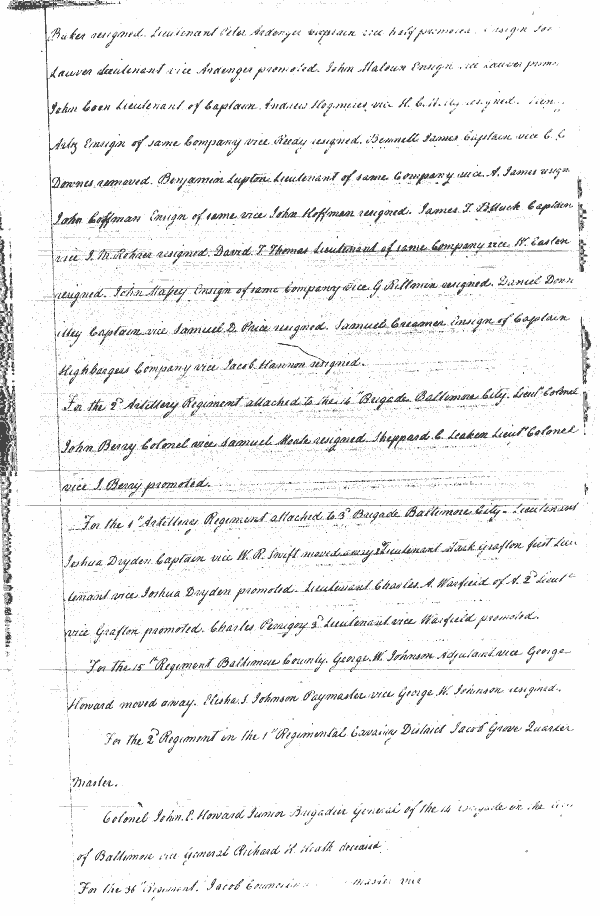 Baker resigned. Lieutenant Peter Ardenger Captain vice promoted. Ensign
Lauver Lieutenant vice Ardenger promoted. John Malown Ensign vice Lauver
John Coen Lieutenant of Captain Andrew Hogmires vice H. C. resigned.
Artz Ensign of same Company vice Reedy resigned. Bennett James Captain vice
Downes removed. Benjamin Lupton Lieutenant of same Company vice A. James resign
John Coffman Ensign of same vice John Hoffman resigned. James T. Captain
vice J. M. Rohrer resigned. David T. Thomas Lieutenant of same Company vice H. Easton
resigned. John Ensign of same Company vice G resigned. Daniel Donn
Captain vice Samuel D. Price resigned. Samuel Creamer Ensign of Captain
Highbargers Company vice Jacob Hannon resigned.
For the 2d Artillery Regiment attached to the 14th Brigade Baltimore City. Lieut Colonel
John Berry Colonel vice Samuel Moale resigned. Sheppard C. Leaken Lieut Colonel
vice J. Berry promoted.
For the 1st Artillery Regiment attached to 3d Brigade Baltimore City - Lieutenant
Joshua Dryden Captain vice W. R. Swift moved away Lieutenant Mark Grafton first Lieu
tenant vice Joshua Dryden promoted. Lieutenant Charles A. Warfield of A. 2d Lieut
vice Grafton promoted. Charles Perregoy 3d Lieutenant vice Warfield promoted.
For the 15th Regiment Baltimore County. George W. Johnson Adjutant vice George
Howard moved away. Elesha S. Johnson Paymaster vice George W. Johnson resigned.
For the 2d Regiment in the 1st Regimental Cavalry District Jacob Grove Quarter
Master.
Colonel John E. Howard Junior Brigadier General of the 14 Brigade in the City
of Baltimore vice General Richard K. Heath deceased
For the 36th Regiment. Jacob master vice